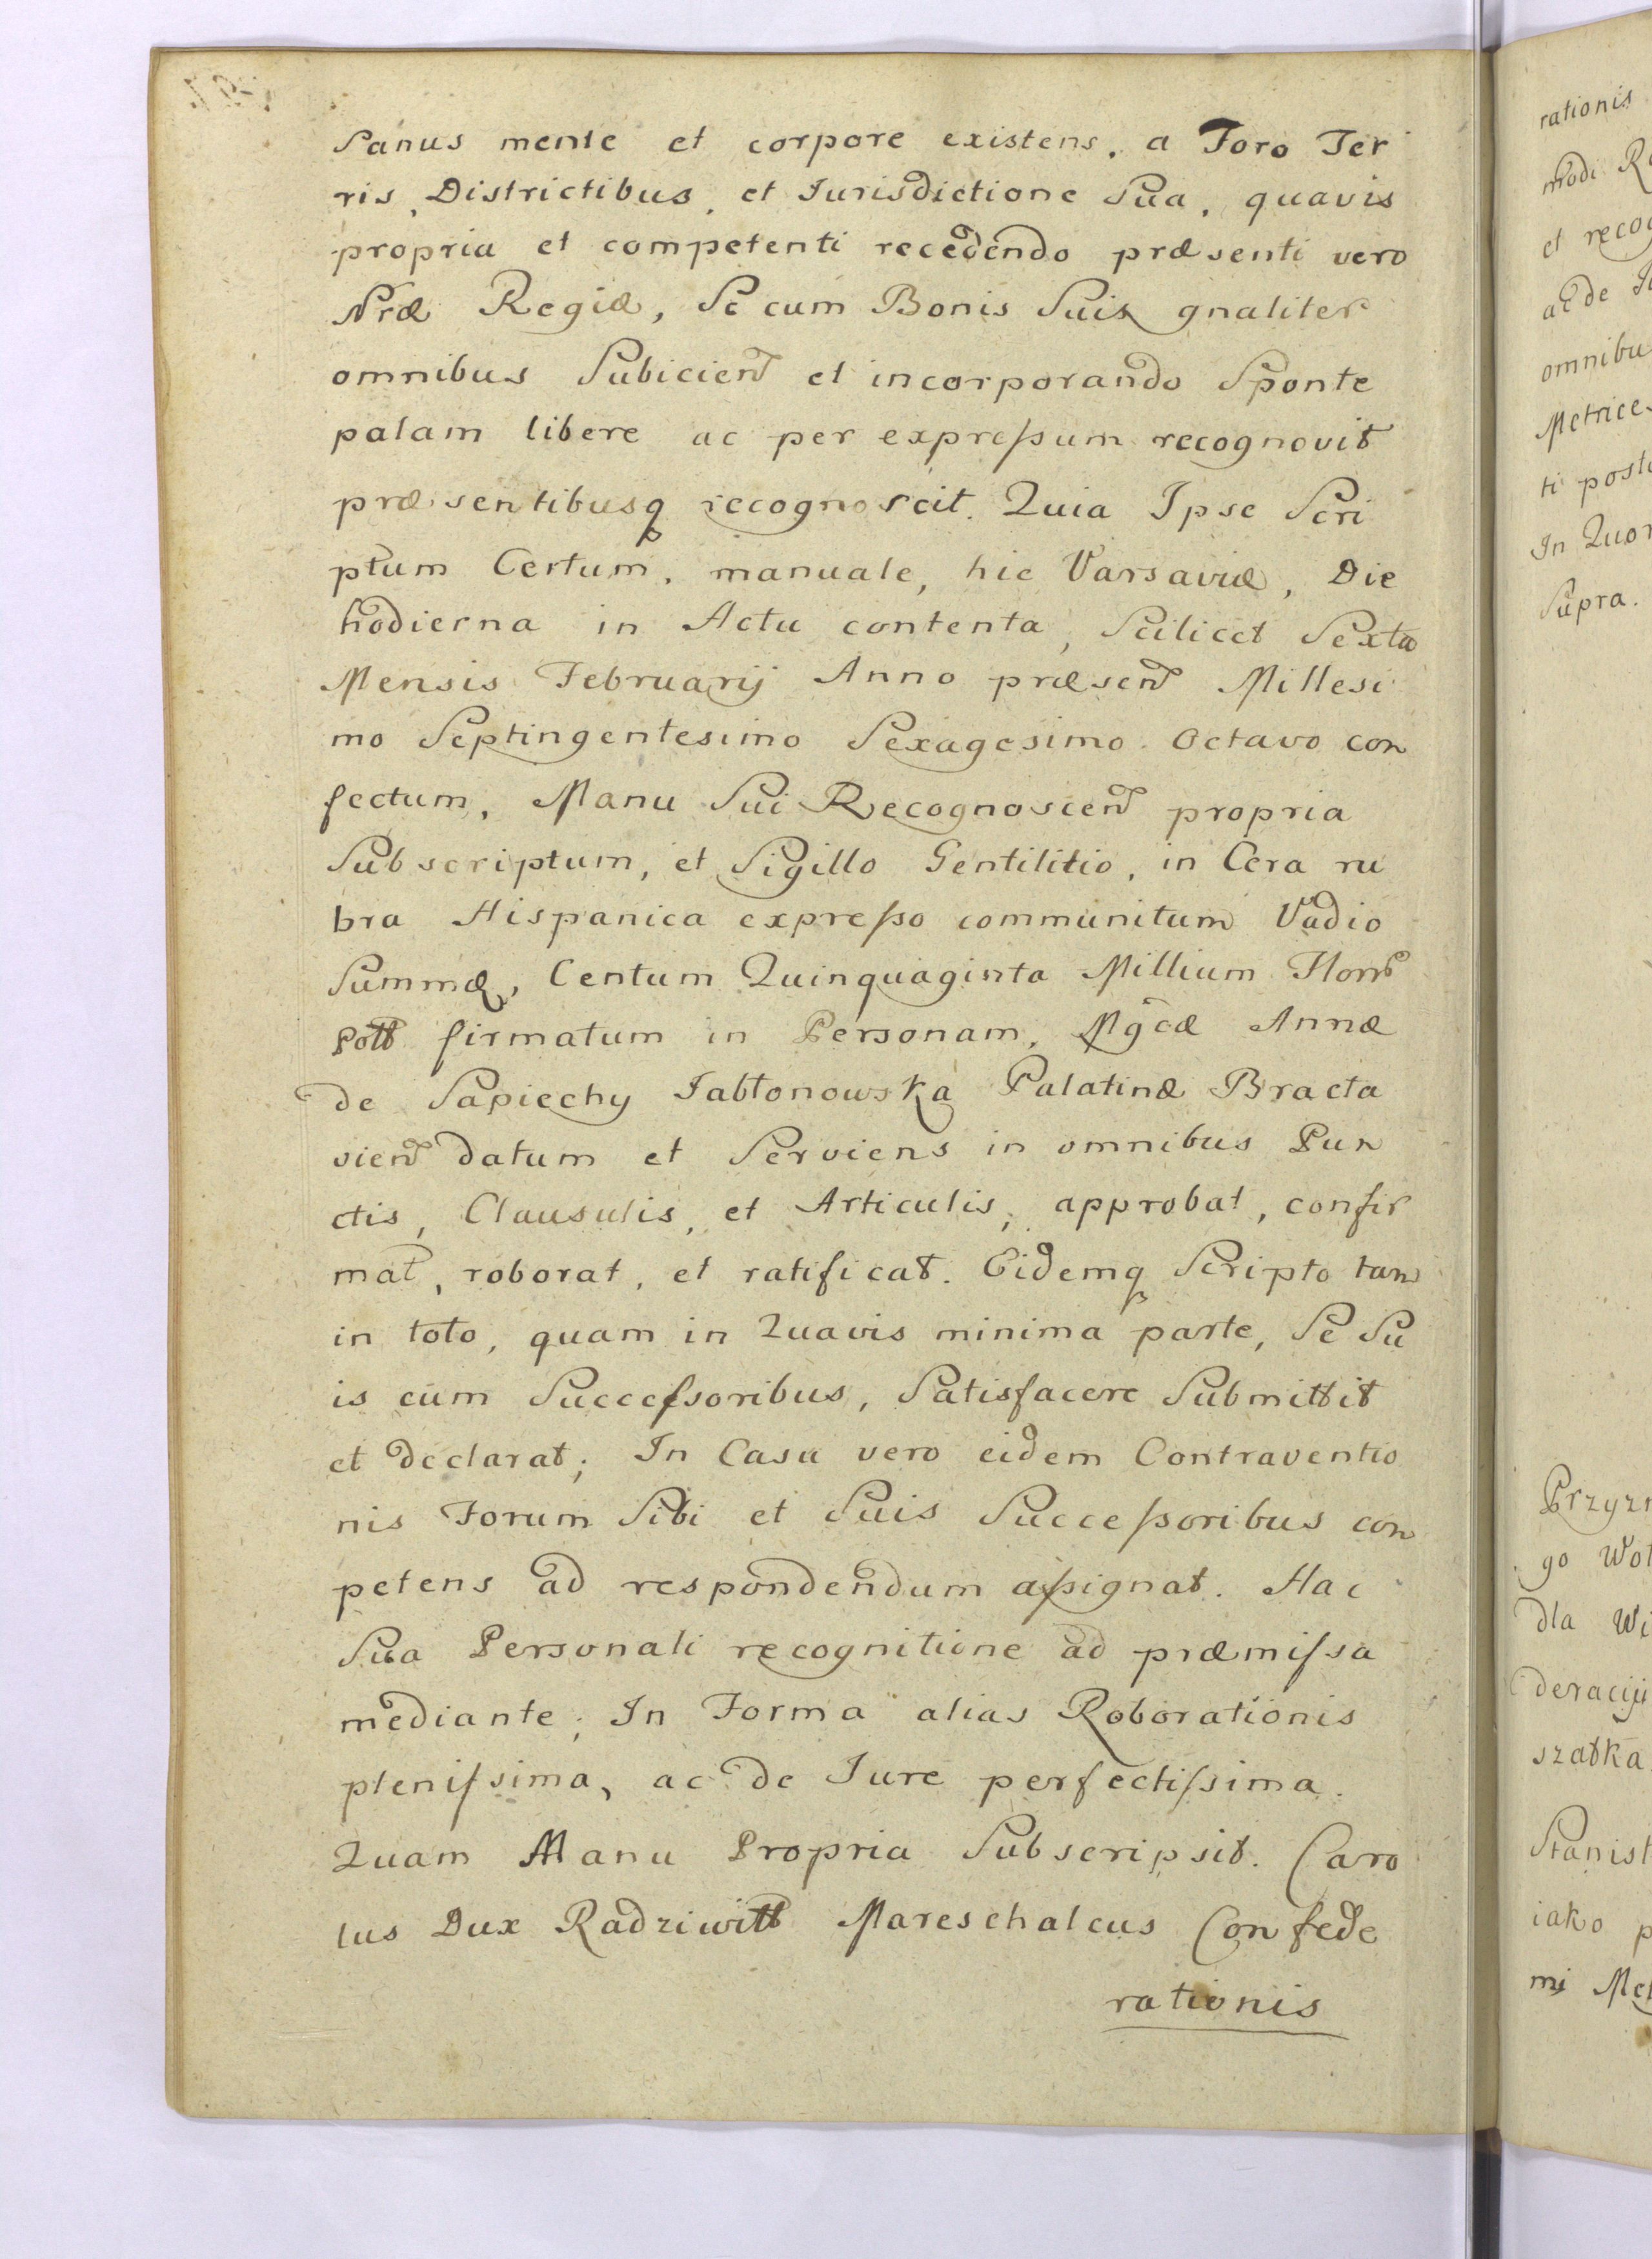 Sanus mente et corpore existens, a Foro Ter
ris, Districtibus, et Jurisdictione Sua, quavis
propria et competenti recedendo præsenti vero
Nræ Regiæ, Se cum Bonis Suis gnaliter
omnibus Subicien et incorporando Sponte
palam libere ac per expressum recognovit
præsentibusq recognoscit. Quia Ipse Scri
ptum Certum, manuale, hic Varsaviæ, Die
hodierna in Actu contenta, Scilicet Sexta
Mensis Februarij Anno præsen Millesi
mo Septingentesimo Sexagesimo Octavo con
fectum, Manu Sui Recognoscen propria
Subscriptum, et Sigillo Gentilitio, in Cera ru
bra Hispanica expresso communitum Vadio
Summæ, Centum Quinquaginta Millium Flor
Poll firmatum in Personam, Mgcæ Annæ
de Sapiechy Jabłonowska Palatinæ Bracta
vien datum et Serviens in omnibus Pun
ctis, Clausulis, et Articulis, approbat, confir
mat, roborat, et ratificat. Eidemq Scripto tam
in toto, quam in Quavis minima parte, Se Su
is cum Successoribus, Satisfacere Submittit
et declarat; In Casu vero eidem Contraventio
nis Forum Sibi et Suis Successoribus com
petens ad respondendum assignat. Hac
Sua Personali recognitione ad præmissa
mediante, In Forma alias Roborationis
plenissima, ac de Jure perfectissima.
Quam Manu Propria Subscripsit. Caro
lus Dux Radziwiłł Mareschalcus Confede
rationis
rationis
modi
et recog
ac de
omnibu
Metrices
ti post
In Quor
Supra.
Przyzn
go Woł
dla Wi
deracyi
szałka
Stanisł
iako p
mi Met